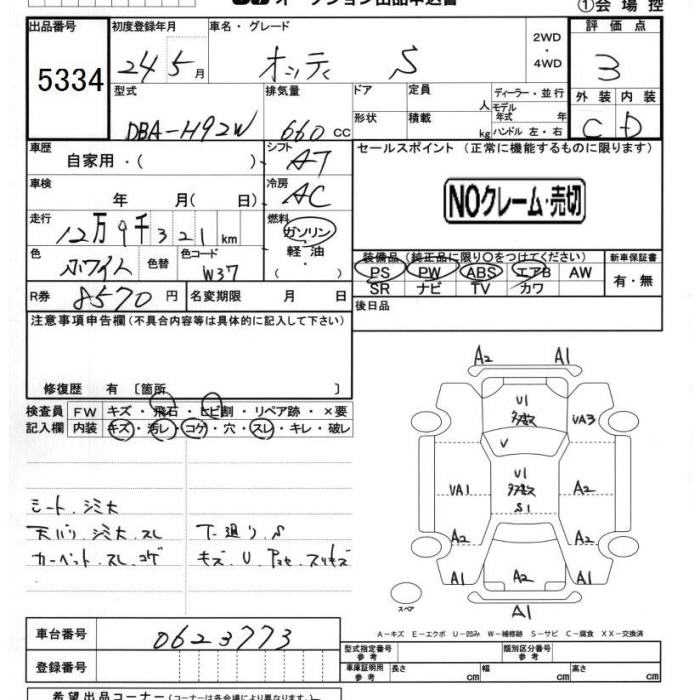 オークション出品申込書
①会場控
出品番号 初度登録年月 車名・グレード 2WD・4WD 評価点
5334 24年5月 オッティ S 3
型式 排気量 ドア 定員 人 ディーラー・並行 外装 内装
モデル年式 年
DBA-H92W 660cc 形状 積載 kg ハンドル 左・右 C D
車歴 自家用・( ) シフト AT セールスポイント(正常に機能するものに限ります)
車検 年 月( 日) 冷房 AC NOクレーム・売切
走行 12万9千321km 燃料 ガソリン・軽油・( )
色 ホワイト 色替 色コード W37
装備品(純正品に限り○をつけてください) 新車保証書
PS PW ABS エアB AW 有・無
SR ナビ TV カワ
R券 8570円 名変期限 月 日 後日品
注意事項申告欄(不具合内容等は具体的に記入して下さい)
修復歴 有〔箇所 〕
検査員 FW キズ・飛石・ヒビ割・リペア跡・×要
記入欄 内装 キズ・汚レ・コゲ・穴・スレ・キレ・破レ
シート.シミ大
天バリ.シミ大.スレ 下廻り.S
カーペット.スレ.コゲ キズ.U
A2 A1
U1
多数 UA3
V
UA1 U1 A2
多数
S1
A2 A2
A1 A2 A1
スペア
A1
A-キズ E-エクボ U-凹み W-補修跡 S-サビ C-腐食 XX-交換済
車台番号 0623773
登録番号
型式指定番号 参考 類別区分番号 参考
車庫証明用 参考 長さ cm 幅 cm 高さ cm
希望出品コーナー(コーナーは各会場により異なります。)